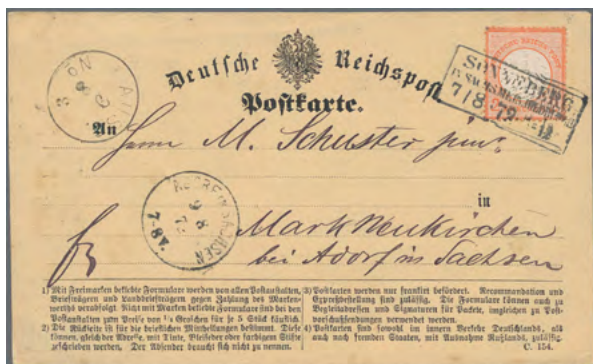 Deutsche Reichspost
Postkarte.
SONNEBERG
7/8 72
An Herrn M. Schuster jun.
in
Mark Neukirchen
bei Adorf in Sachsen
ADORF IN SACHSEN
1) Mit Freimarken beklebte Formulare werden von allen Postanstalten,
Briefträgern und Landbriefträgern gegen Zahlung des Marken-
werths verabfolgt. Nicht mit Marken beklebte Formulare sind bei den
Postanstalten zum Preise von ¼ Groschen für 5 Stück käuflich.
2) Die Rückseite ist für die brieflichen Mittheilungen bestimmt. Diese
können, gleich der Adresse, mit Tinte, Bleifeder oder farbigem Stifte
geschrieben werden. Der Absender braucht sich nicht zu nennen.
3) Postkarten werden nur frankirt befördert. Recommandation und
Expreßbestellung sind zulässig. Die Formulare können auch zu
Begleitadressen und Signaturen für Packete, imgleichen zu Post-
vorschußsendungen verwendet werden.
4) Postkarten sind sowohl im innern Verkehr Deutschlands, als
auch nach fremden Staaten, mit Ausnahme Rußlands, zulässig.
C. 154.